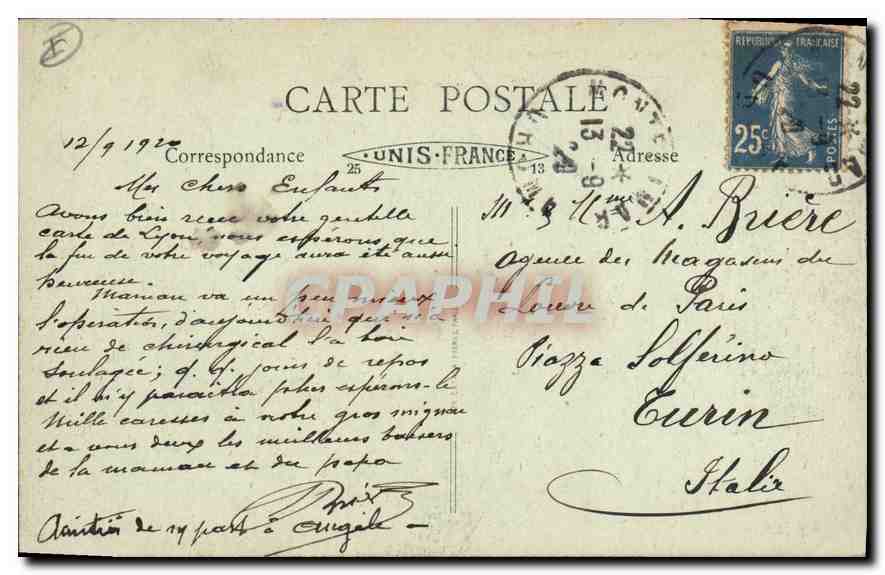 CARTE POSTALE
REPUBLIQUE FRANÇAISE
25c
POSTES
22 * 13 -9
12/9 1920
Correspondance
UNIS-FRANCE
25
13
Adresse
Mes chers Enfants
Avons bien recu votre gentille
carte de Lyon vous espérons que
la fin de votre voyage aura été aussi
heureuse.
Maman va un peu mieux
l'opération, d'aujourd'hui qui n'a
rien de chirurgical l'a bien
soulagée; q. q. jours de repos
et il n'y paraîtra plus espérons-le
Mille caresses à notre gros mignon
et a vous deux les meilleurs baisers
de la maman et du papa
Amitiés de my part à Angèle -
M & Mme A. Brière
Agence des Magasins du
Louvre de Paris
Piazza Solférino
Turin
Italie
CPAPHIL